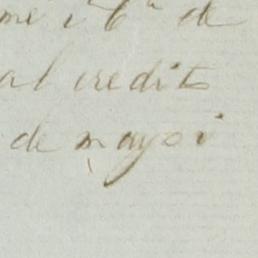 me i 6ª de
al credito
de mayoi